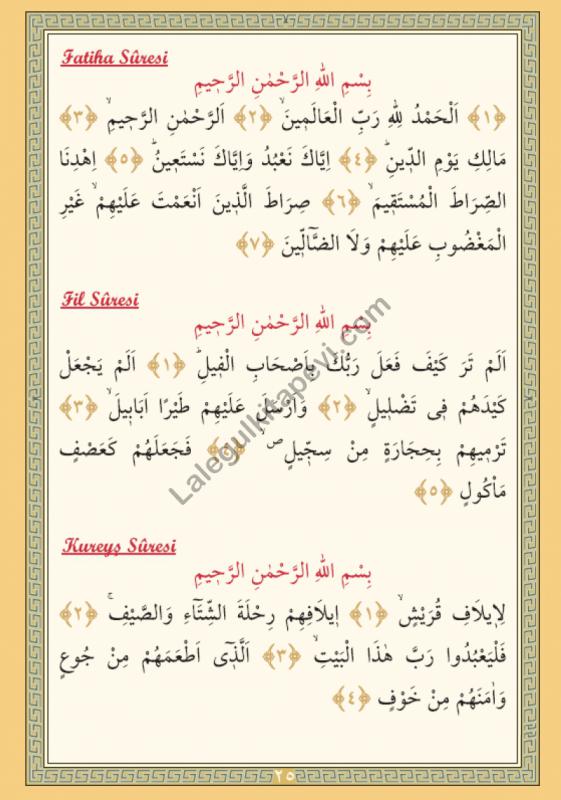 Fatiha Sûresi
بِسْمِ اللهِ الرَّحْمٰنِ الرَّح۪يمِ
﴿١﴾ اَلْحَمْدُ لِلّٰهِ رَبِّ الْعَالَم۪ينَۙ ﴿٢﴾ اَلرَّحْمٰنِ الرَّح۪يمِۙ ﴿٣﴾
مَالِكِ يَوْمِ الدّ۪ينِۜ ﴿٤﴾ اِيَّاكَ نَعْبُدُ وَاِيَّاكَ نَسْتَع۪ينُۜ ﴿٥﴾ اِهْدِنَا
الصِّرَاطَ الْمُسْتَق۪يمَۙ ﴿٦﴾ صِرَاطَ الَّذ۪ينَ اَنْعَمْتَ عَلَيْهِمْۙ غَيْرِ
الْمَغْضُوبِ عَلَيْهِمْ وَلَا الضَّٓالّ۪ينَ ﴿٧﴾
Fil Sûresi
بِسْمِ اللهِ الرَّحْمٰنِ الرَّح۪يمِ
اَلَمْ تَرَ كَيْفَ فَعَلَ رَبُّكَ بِاَصْحَابِ الْف۪يلِۜ ﴿١﴾ اَلَمْ يَجْعَلْ
كَيْدَهُمْ ف۪ي تَضْل۪يلٍۙ ﴿٢﴾ وَاَرْسَلَ عَلَيْهِمْ طَيْرًا اَبَاب۪يلَۙ ﴿٣﴾
تَرْم۪يهِمْ بِحِجَارَةٍ مِنْ سِجّ۪يلٍۖ ﴿٤﴾ فَجَعَلَهُمْ كَعَصْفٍ
مَاْكُولٍ ﴿٥﴾
Kureyş Sûresi
بِسْمِ اللهِ الرَّحْمٰنِ الرَّح۪يمِ
لِا۪يلَافِ قُرَيْشٍۙ ﴿١﴾ ا۪يلَافِهِمْ رِحْلَةَ الشِّتَٓاءِ وَالصَّيْفِۚ ﴿٢﴾
فَلْيَعْبُدُوا رَبَّ هٰذَا الْبَيْتِۙ ﴿٣﴾ اَلَّذ۪ٓي اَطْعَمَهُمْ مِنْ جُوعٍ
وَاٰمَنَهُمْ مِنْ خَوْفٍ ﴿٤﴾
٢٥
Lalegulkitapevi.com